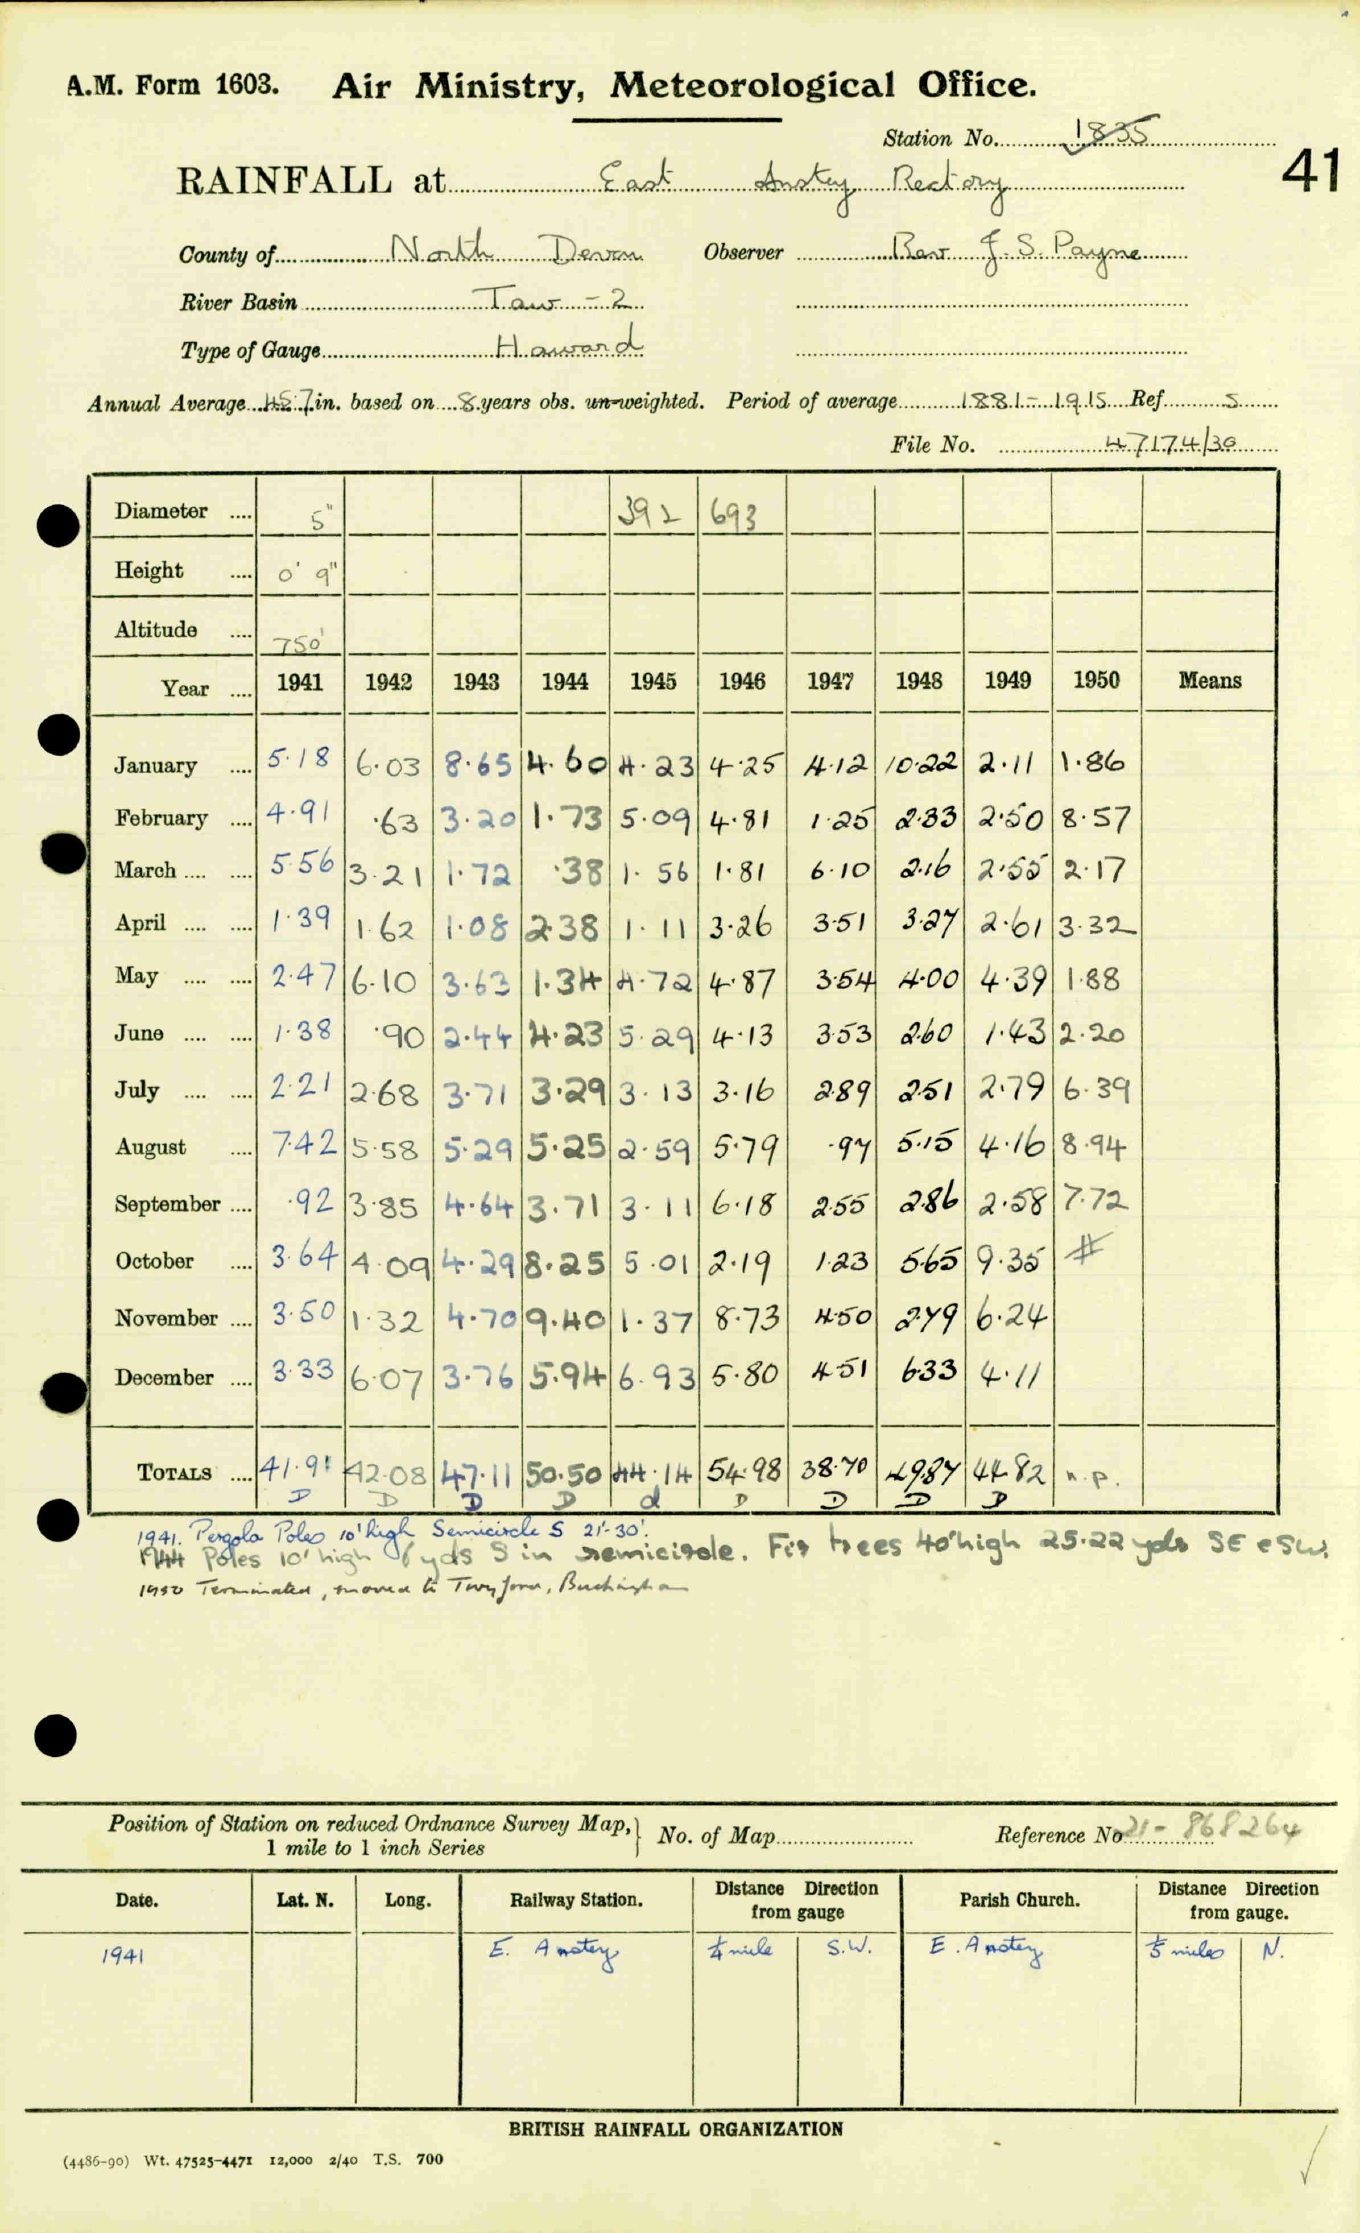 A.M. Form 1603. Air Ministry, Meteorological Office.
Station No. 1835
41
RAINFALL at East Anstey Rectory
County of North Devon Observer Rev J. S. Payne
River Basin Taw - 2
Type of Gauge Howard
Annual Average 45.7 in. based on 8 years obs. un-weighted. Period of average 1881-1915 Ref 5
File No. 47174/30
Diameter .... 5" 392 693
Height .... 0' 9"
Altitude .... 750'
Year .... 1941 1942 1943 1944 1945 1946 1947 1948 1949 1950 Means
January .... 5.18 6.03 8.65 4.60 4.23 4.25 4.12 10.22 2.11 1.86
February .... 4.91 .63 3.20 1.73 5.09 4.81 1.25 2.33 2.50 8.57
March .... .... 5.56 3.21 1.72 .38 1.56 1.81 6.10 2.16 2.55 2.17
April .... .... 1.39 1.62 1.08 2.38 1.11 3.26 3.51 3.27 2.61 3.32
May .... .... 2.47 6.10 3.63 1.34 4.72 4.87 3.54 4.00 4.39 1.88
June .... .... 1.38 .90 2.44 4.23 5.29 4.13 3.53 2.60 1.43 2.20
July .... .... 2.21 2.68 3.71 3.29 3.13 3.16 2.89 2.51 2.79 6.39
August .... 7.42 5.58 5.29 5.25 2.59 5.79 .97 5.15 4.16 8.94
September .... .92 3.85 4.64 3.71 3.11 6.18 2.55 2.86 2.58 7.72
October .... 3.64 4.09 4.29 8.25 5.01 2.19 1.23 5.65 9.35 #
November .... 3.50 1.32 4.70 9.40 1.37 8.73 4.50 2.79 6.24
December .... 3.33 6.07 3.76 5.94 6.93 5.80 4.51 6.33 4.11
TOTALS .... 41.91 42.08 47.11 50.50 44.14 54.98 38.70 49.87 44.82 n.p.
D D D D d D D D D
1941. Pergola Poles 10' high Semicircle S 21'-30'.
1944 Poles 10' high 6 yds S in semicircle. Fir trees 40' high 25.22 yds SE & SW.
1950 Terminated, moved to Twyford, Buckingham
Position of Station on reduced Ordnance Survey Map, 1 mile to 1 inch Series
No. of Map Reference No 21-868264
Date. Lat. N. Long. Railway Station. Distance Direction from gauge Parish Church. Distance Direction from gauge.
1941 E. Anstey ¼ mile S.W. E. Anstey ⅓ miles N.
BRITISH RAINFALL ORGANIZATION
(4486-90) Wt. 47525-4471 12,000 2/40 T.S. 700